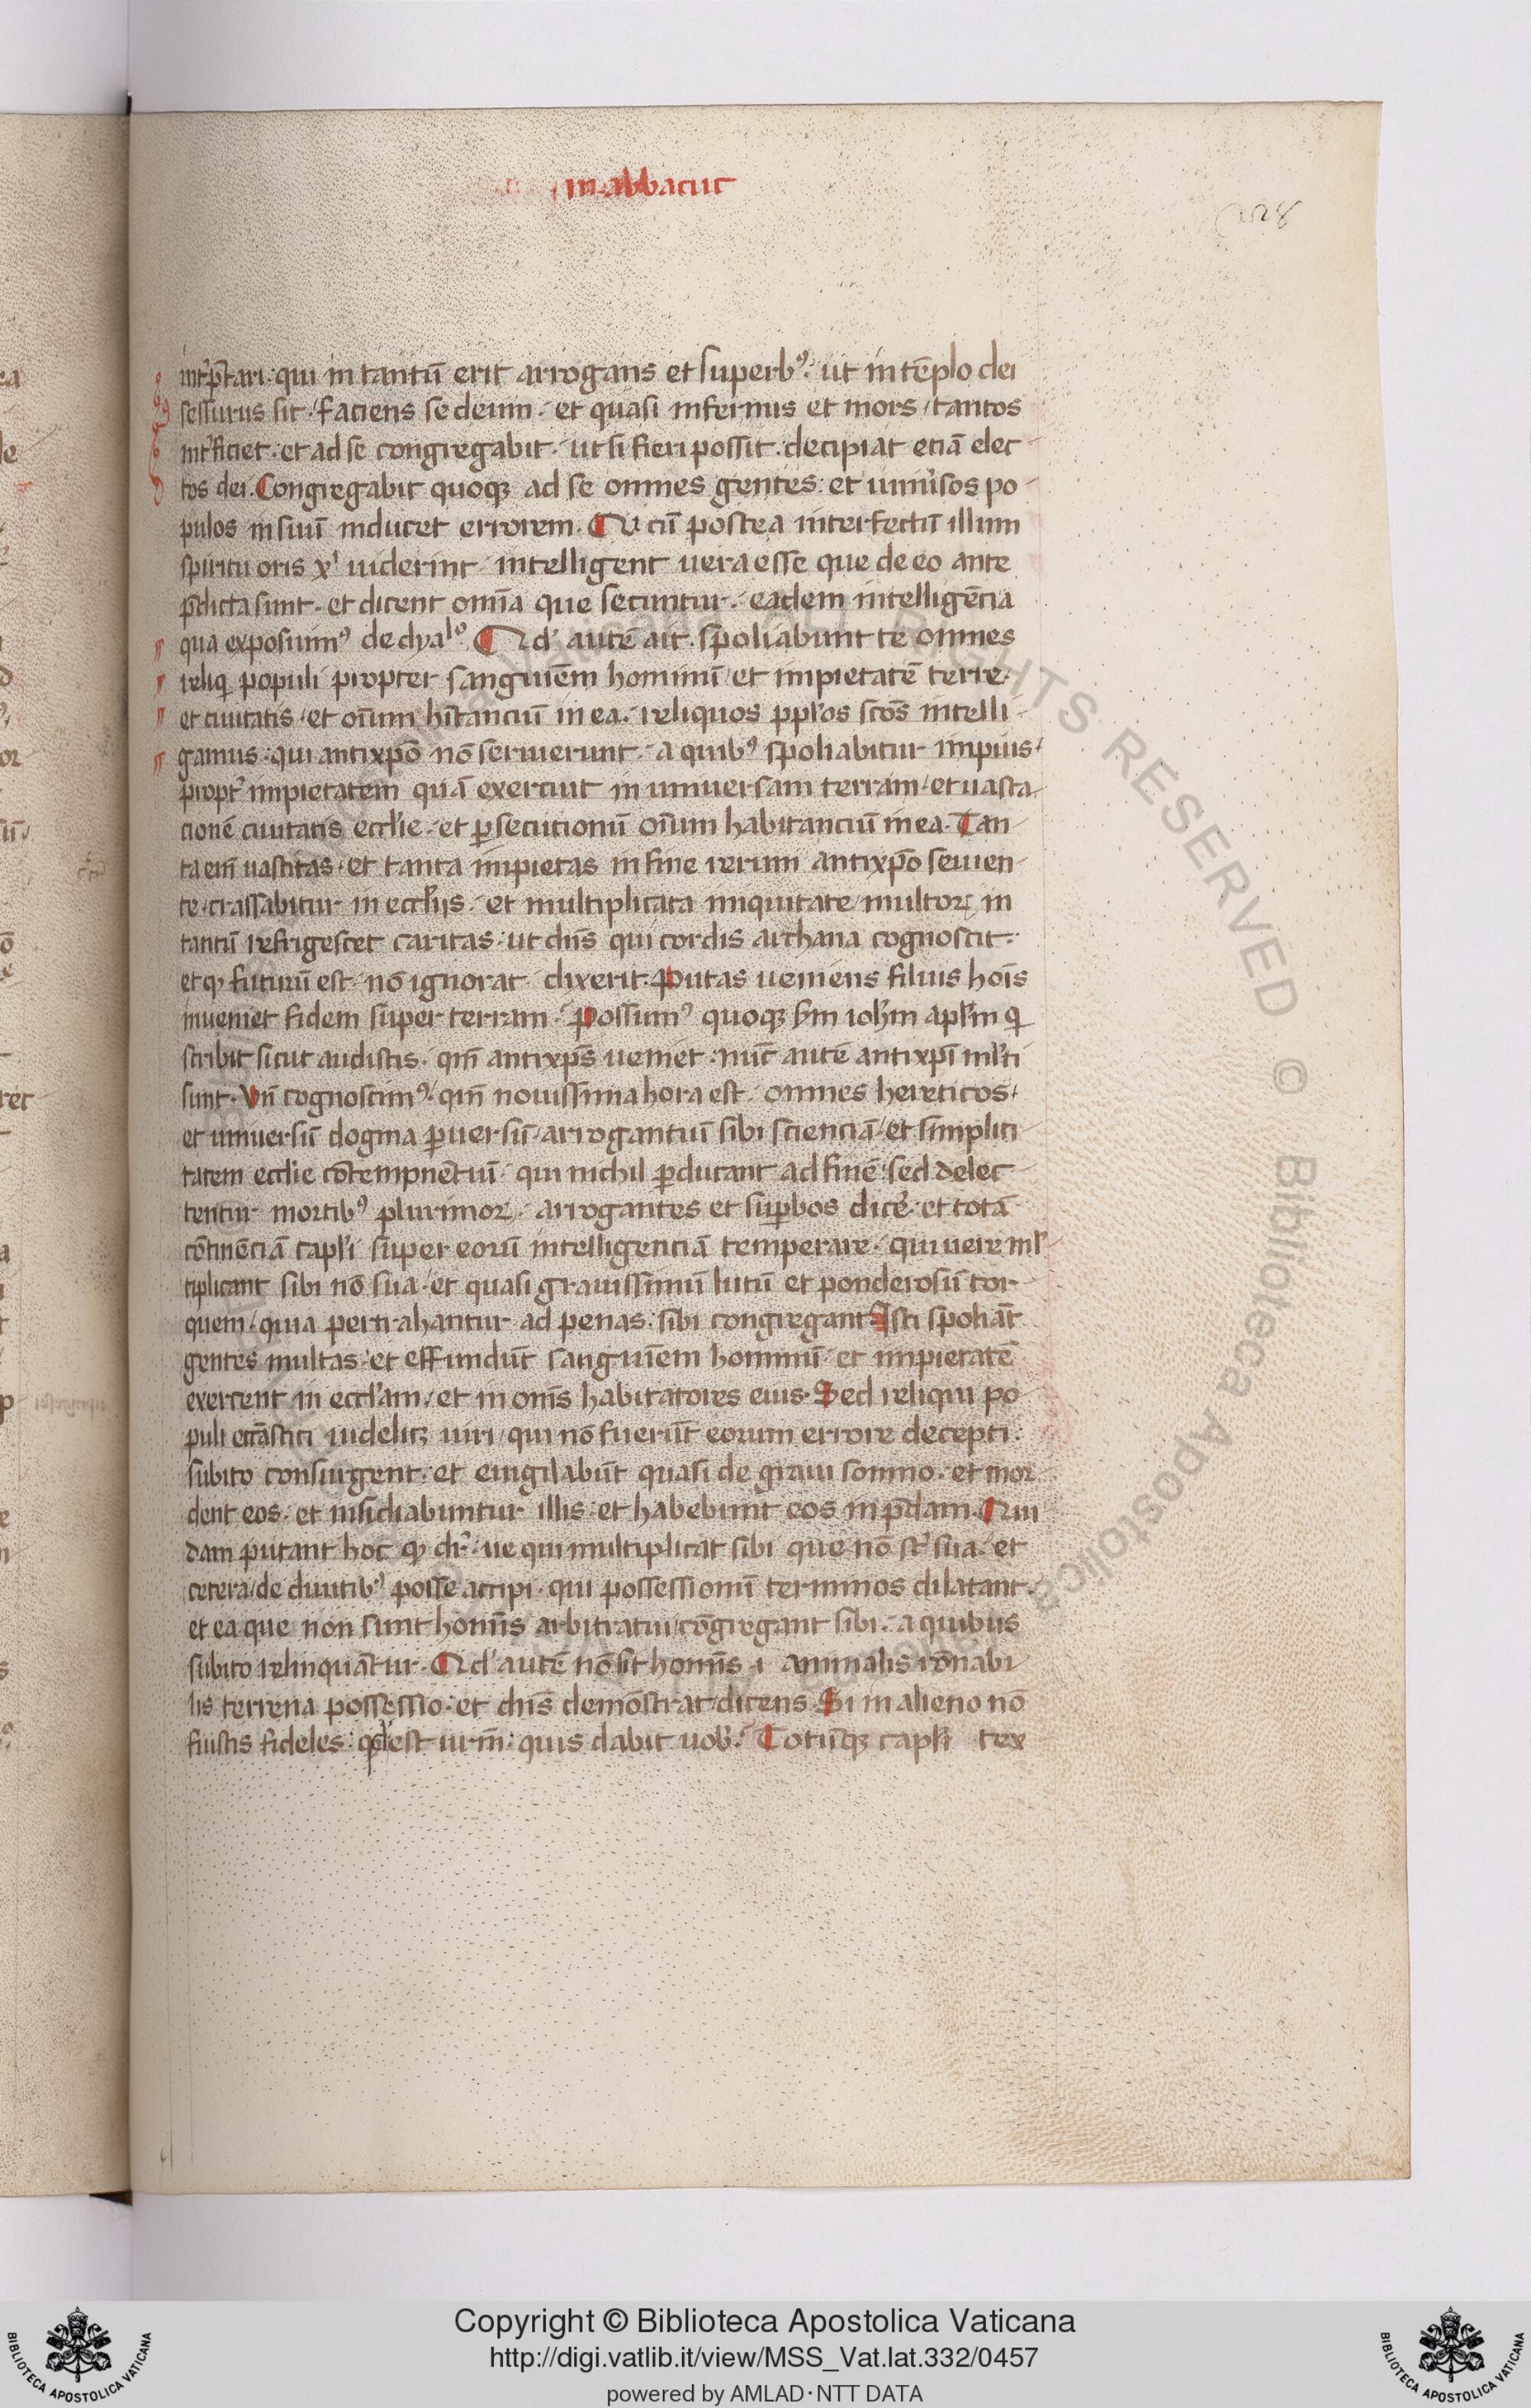 in abbacuc
228
int̾p̄tari· qui in tantū erit arrogans et superbꝰ· ut in tēplo dei
sessurus sit· faciens se deum· et quasi infernus et mors tantos
int̾ficiet· et ad se congregabit· ut si fieri possit· decipiat etiā elec
tos dei. Congregabit quoqꝫ ad se omnes gentes· et uniu̾sos po
pulos in suū inducet errorem. Et cū postea interfectū illum
spiritu oris xp̄i uiderint intelligent uera esse que de eo ante
p̄dicta sunt· et dicent om̄ia que secuntur· eadem intelligēcia
qua exposuimꝰ de dyalo. Qd̾ autē ait· spoliabunt te omnes
reliq̄ populi propter sanguinem hominū et impietatē terre·
et ciuitatis· et om̄ium hītanciū in ea· reliquos ppl̾os sc̄os intelli
gamus· qui antixp̄o nō seruierunt· a quibꝰ spoliabitur impius·
propt̾ impietatem quā exercuit in uniuersam terram· et uasta
cionē ciuitatis eccl̾ie· et ꝑsecutionū om̄ium habitanciū in ea. Tan
ta em̄ uastitas· et tanta impietas in fine rerum antixp̄o seuien
te crassabitur in eccl̾ijs· et multiplicata iniquitate multoꝝ in
tantū refrigescet caritas· ut dn̄s qui cordis archana cognoscit·
et qꝫ futurū est nō ignorat dixerit. Putas ueniens filius hoīs
inueniet fidem super terram· Possumꝰ quoqꝫ s̾m ioh̾m apl̾m q̄
scribit sicut audistis· qm̄ antixp̄s ueniet· nūc autē antixp̄i ml̾ti
sunt· Vn̄ cognoscimꝰ· qm̄ nouissima hora est· omnes hereticos·
et uniuersū dogma ꝑuersū· arrogantiū sibi scienciā· et simplici
tatem eccl̾ie cōtempnentiū· qui nichil ꝑducant ad finē· sed delec
tentur mortibꝰ plurimoꝝ· arrogantes et suꝑbos dicē· et totā
cōtinēciā capl̾i super eorū intelligenciā temperare· qui uere ml̾
tiplicant sibi nō sua· et quasi grauissimū lutū et ponderosū tor
quem· quia pertrahantur ad penas· sibi congregant. Isti spoliāt
gentes multas· et effundūt sanguinem hominū et impietatē
exercent in eccl̾iam· et in om̄s habitatores eius. Sed reliqui po
puli eccl̾iastici uidelicꝫ uiri qui nō fuerūt eorum errore decepti·
subito consurgent· et euigilabūt quasi de graui somno· et mor
dent eos· et insidiabuntur illis· et habebunt eos in p̄dam. Qui
dam putant hoc qꝫ dr̄· ue qui multiplicat sibi que nō st̾ sua· et
cetera de diuitibꝰ posse accipi· qui possessionū terminos dilatant·
et ea que non sunt homīs arbitratui cōgregant sibi· a quibus
subito relinquātur. Qd̾ autē nō sit homīs i animalis rōnabi
lis terrena possessio· et dn̄s demōstrat dicens. Si in alieno nō
fuistis fideles· qd̾ est ur̄m· quis dabit uob̾· Totūqꝫ capl̾i tex
Copyright © Biblioteca Apostolica Vaticana
http://digi.vatlib.it/view/MSS_Vat.lat.332/0457
powered by AMLAD·NTT DATA